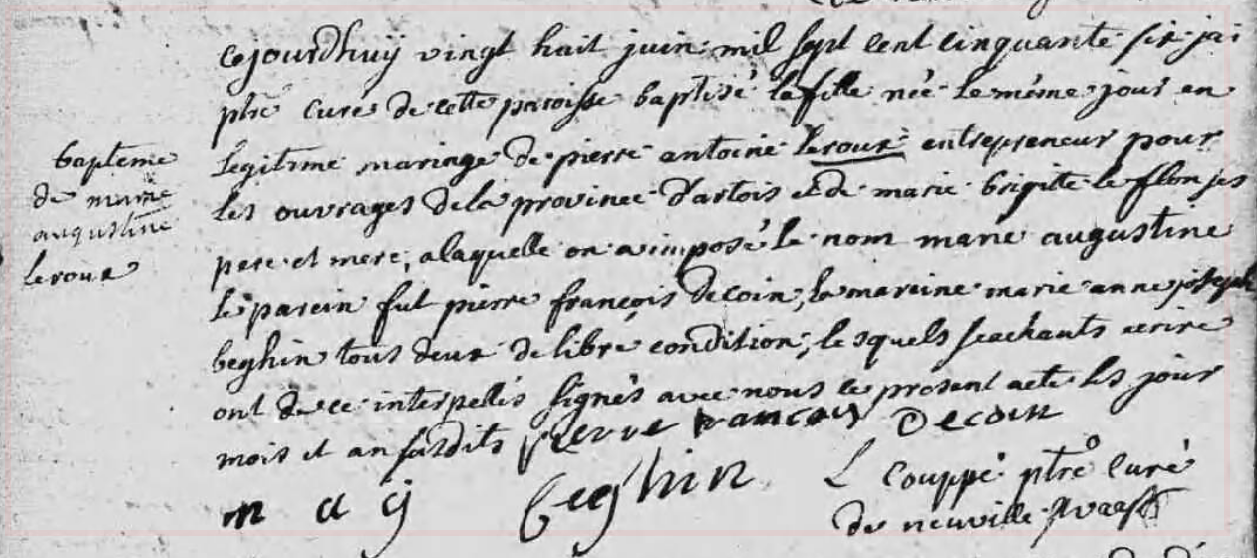 cejourdhuij vingt huit juin mil sept cent cinquante six jai
ptre curé de cette paroisse baptisé la fille née le même jour en
legitime mariage de pierre antoine leroux entrepreneur pour
les ouvrages de la province d'artois et de marie brigitte le flon ses
pere et mere, a laquelle on a imposé le nom marie augustine
le parein fut pierre françois decoin, la mareine marie anne joseph
beghin tous deux de libre condition, lesquels scachants ecrire
ont de ce interpellés signés avec nous le present acte les jour
mois et an susdits pierre francois Decoin
m a j beghin
L Couppé ptre curé
de neuville st vaast
bapteme
de marie
augustine
leroux